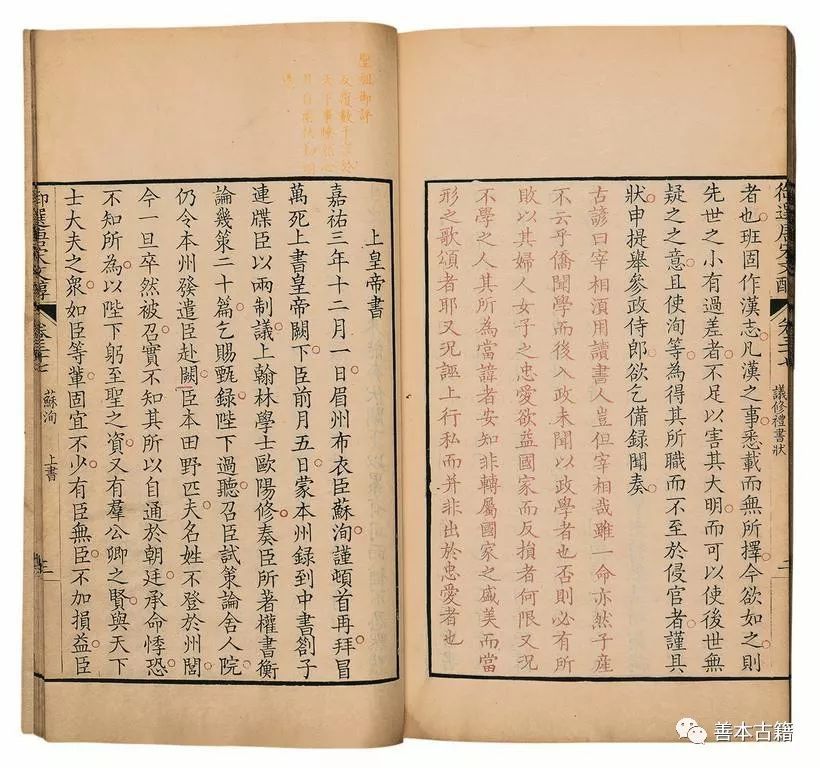 議修禮書狀
二
者也班固作漢志凡漢之事悉載而無所擇今欲如之則
先世之小有過差者不足以害其大明而可以使後世無
疑之之意且使洵等為得其所職而不至於侵官者謹具
狀申提舉參政侍郎欲乞備録聞奏
古諺曰宰相須用讀書人豈但宰相哉雖一命亦然子產
不云乎僑聞學而後入政未聞以政學者也否則必有所
敗以其婦人女子之忠愛欲益國家而反損者何限又況
不學之人其所為當諱者安知非轉屬國家之盛美而當
形之歌頌者耶又況誣上行私而并非出於忠愛者也
聖祖御評
反復數千言於
天下事
上皇帝書
嘉祐三年十二月一日眉州布衣臣蘇洵謹頓首再拜冒
萬死上書皇帝闕下臣前月五日蒙本州録到中書劄子
連牒臣以兩制議上翰林學士歐陽修奏臣所著權書衡
論幾策二十篇乞賜甄録陛下過聽召臣試策論舍人院
仍令本州發遣臣赴闕臣本田野匹夫名姓不登於州閭
今一旦卒然被召實不知其所以自通於朝廷承命悸恐
不知所為以陛下躬至聖之資又有羣公卿之賢與天下
士大夫之衆如臣等輩固宜不少有臣無臣不加損益臣
御選唐宋文醇
卷三十七
蘇洵
上書
善本古籍